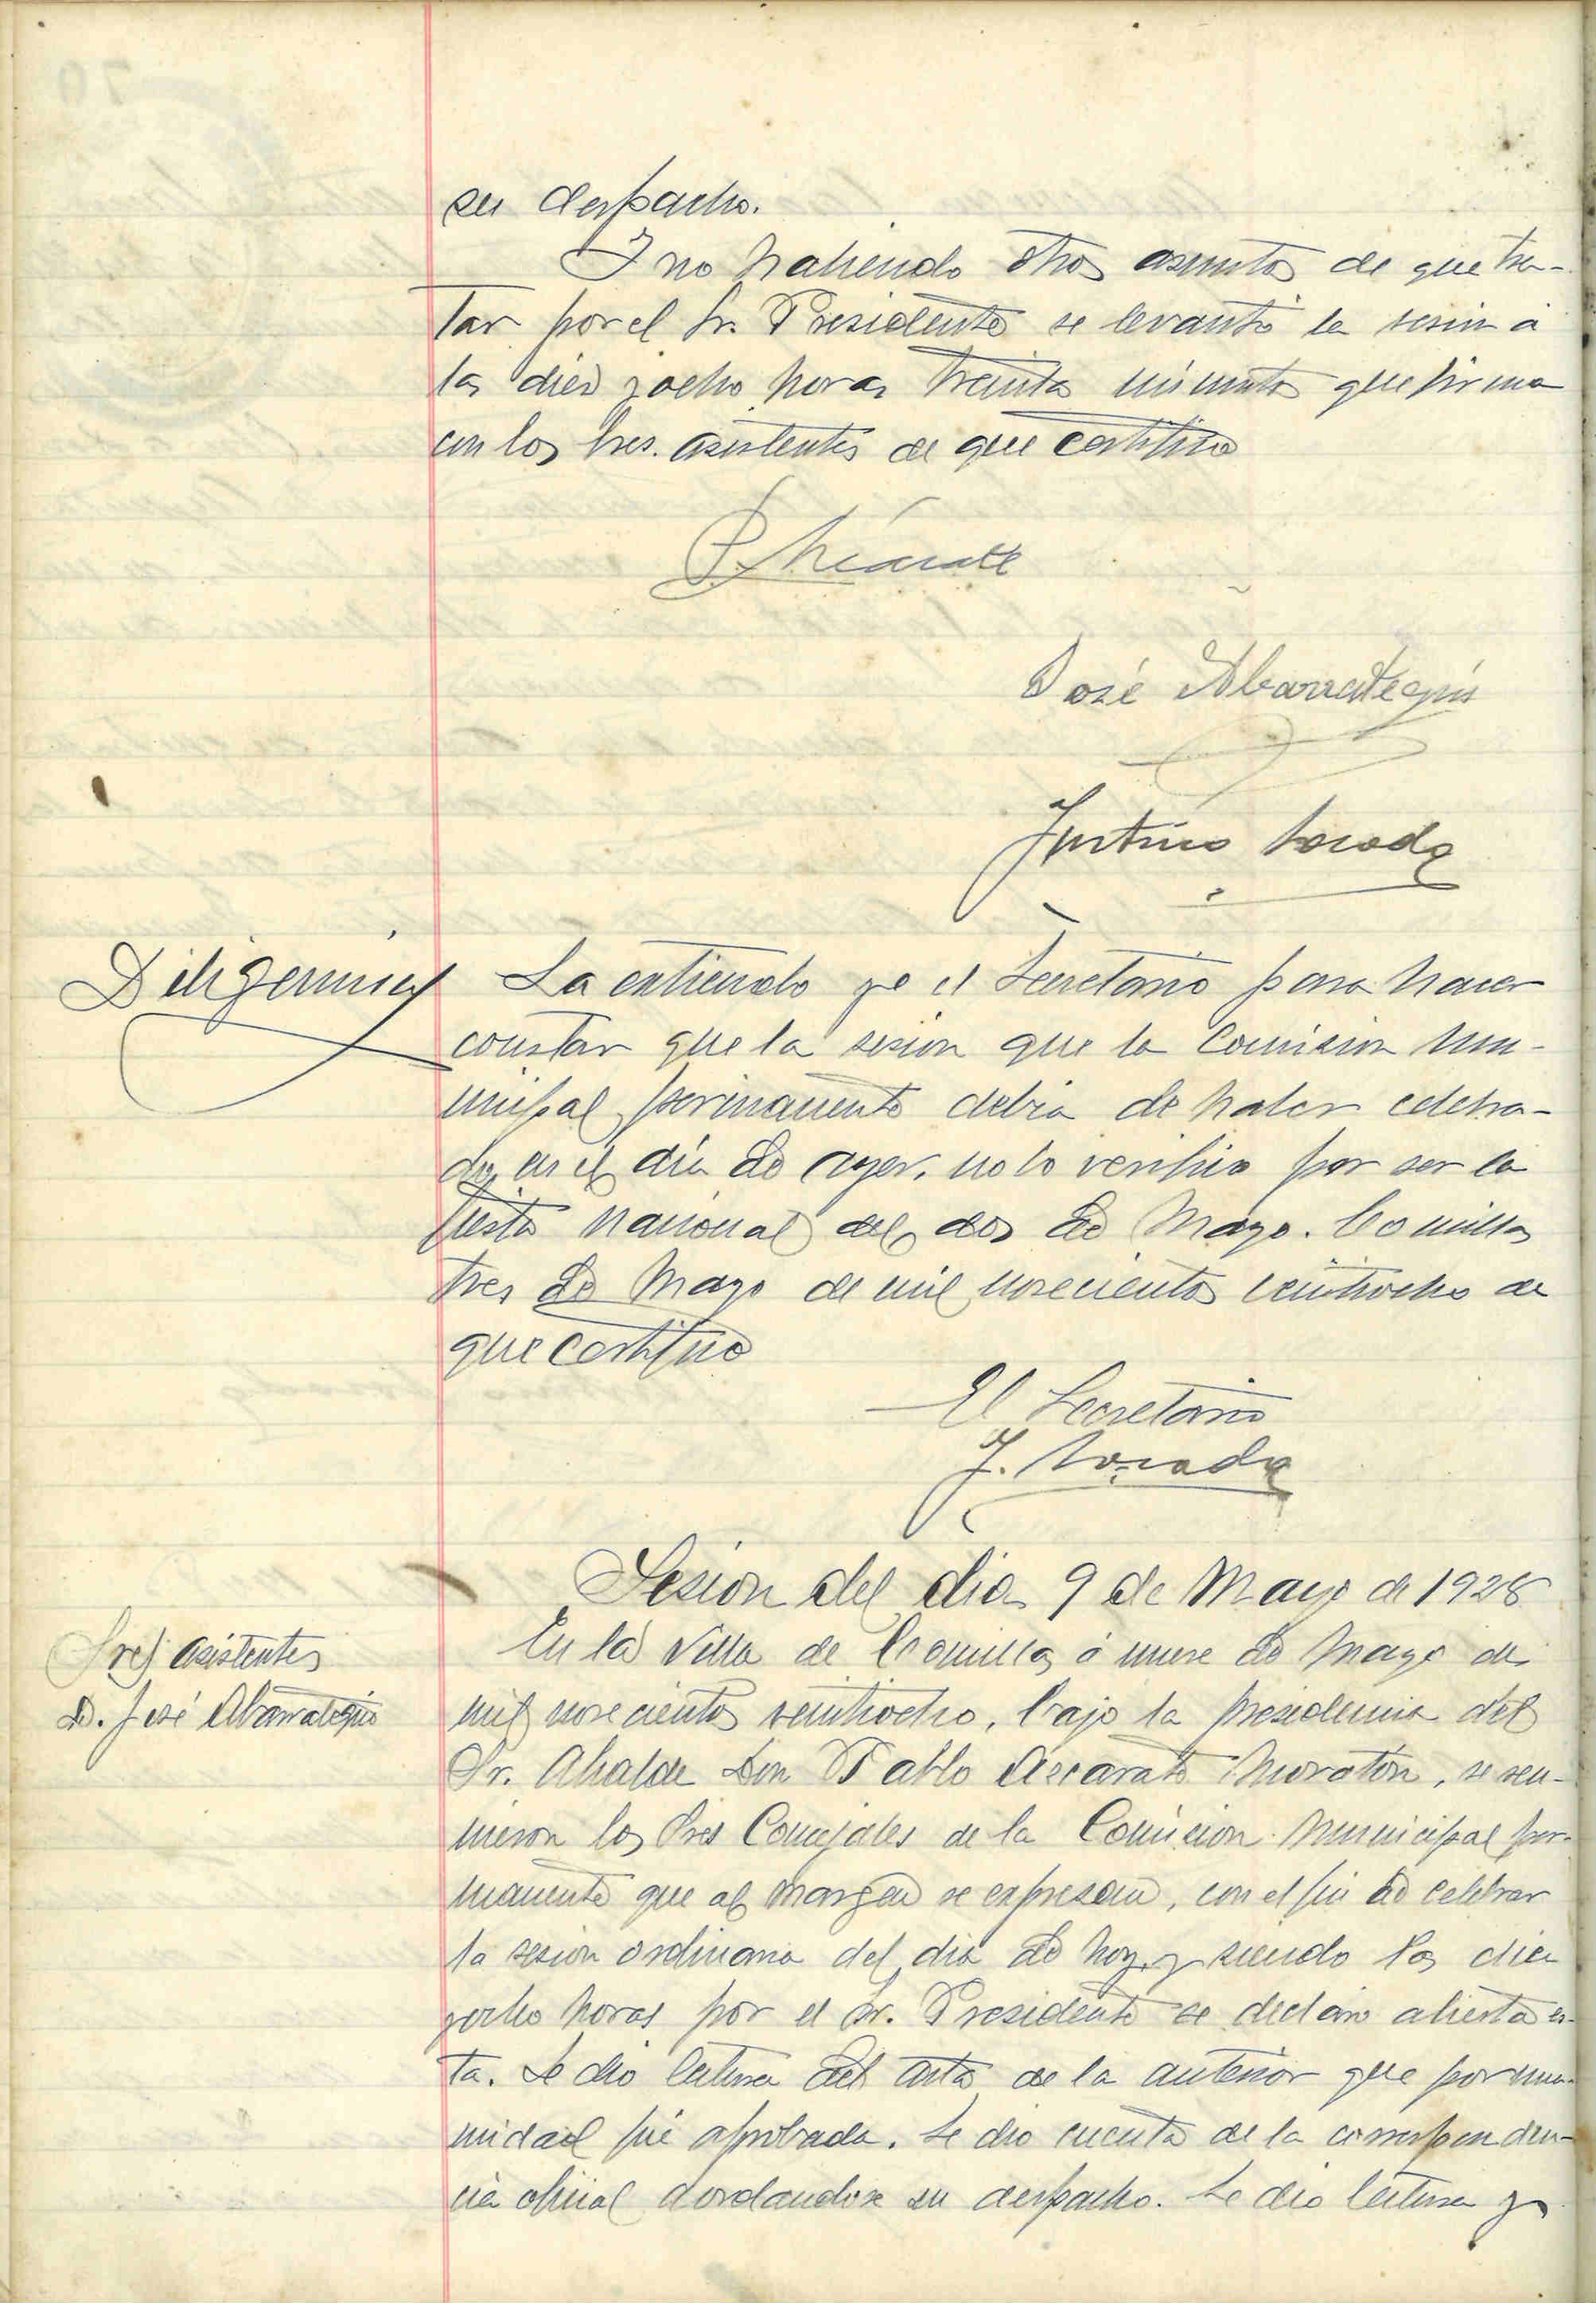 su despacho.
Y no habiendo otros asuntos de que tra-
tar por el Sr. Presidente se levantó la sesión a
las diez y ocho horas treinta minutos que firma
con los Sres. asistentes de que certifico
José Abarrategui
Justino
Diligencia
La extiendo yo el Secretario para hacer
constar que la sesión que la Comisión Mu-
nicipal permanente debía de haber celebra-
do en el día de ayer, no lo verificó por ser la
fiesta nacional del dos de Mayo. Comillas
tres de Mayo de mil novecientos veintiocho de
que certifico
El Secretario
J.
Sesión del día 9 de Mayo de 1928
Sres asistentes
D. José Abarrategui
En la Villa de Comillas a nueve de Mayo de
mil novecientos veintiocho, bajo la presidencia del
Sr. Alcalde Don Pablo Azcarate Moratón, se reu-
nieron los Sres Concejales de la Comisión Municipal per-
manente que al margen se expresan, con el fin de celebrar
la sesion ordinaria del día de hoy, y siendo las diez
y ocho horas por el Sr. Presidente se declaró abierta es-
ta. Se dio lectura del acta de la anterior que por una-
nimidad fué aprobada. Se dio cuenta de la corresponden-
cia oficial acordandose su despacho. Se dio lectura y